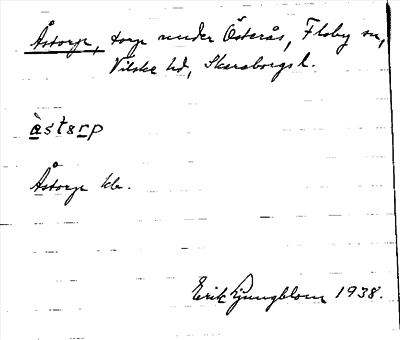 Åstorp, torp under Österås, Floby sn,
Vilske hd, Skaraborgs l.
Åstorp kb.
Erik Ljungblom 1938.